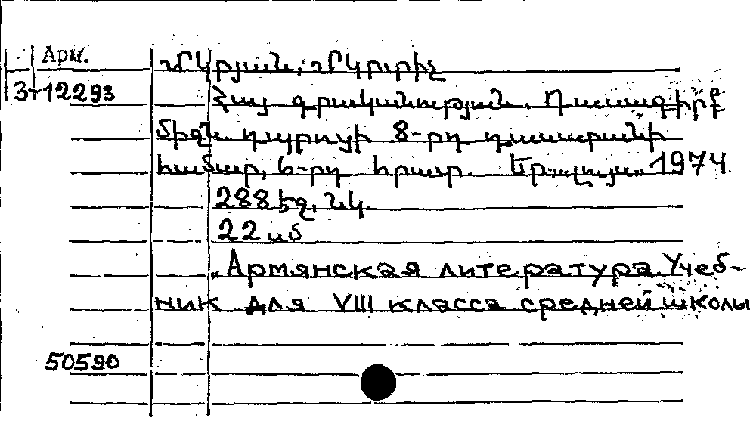 Арм.
Մկրյան, Մկրտիչ
3-12293
Հայ գրականություն. Դասագիրք
միջն. դպրոցի 8-րդ դասարանի
համար, 6-րդ հրատ. Եր., Լույս, 1974
288 էջ. նկ.
22 սմ
Армянская литература. Учеб-
ник для VIII класса средней школы
50590